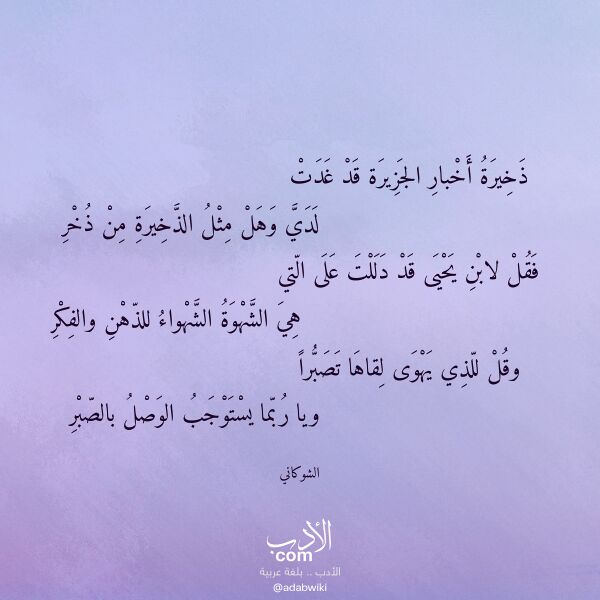 ذَخِيرَةُ أَخْبارِ الجَزِيرَة قَدْ غَدَتْ
لَدَيَّ وَهَلْ مِثْلُ الذَّخِيرَةِ مِنْ ذُخْرِ
فَقُلْ لابْنِ يَحْيَى قَدْ دَلَلْتَ عَلَى الّتي
هِيَ الشَّهْوَةُ الشَّهْواءُ للذّهْنِ والفِكْرِ
وقُلْ للّذِي يَهْوَى لِقاهَا تَصَبُّراً
ويا رُبّما يسْتَوْجَبُ الوَصْلُ بالصّبْرِ
الشوكاني
الأدب
com
الأدب .. بلغة عربية
@adabwiki